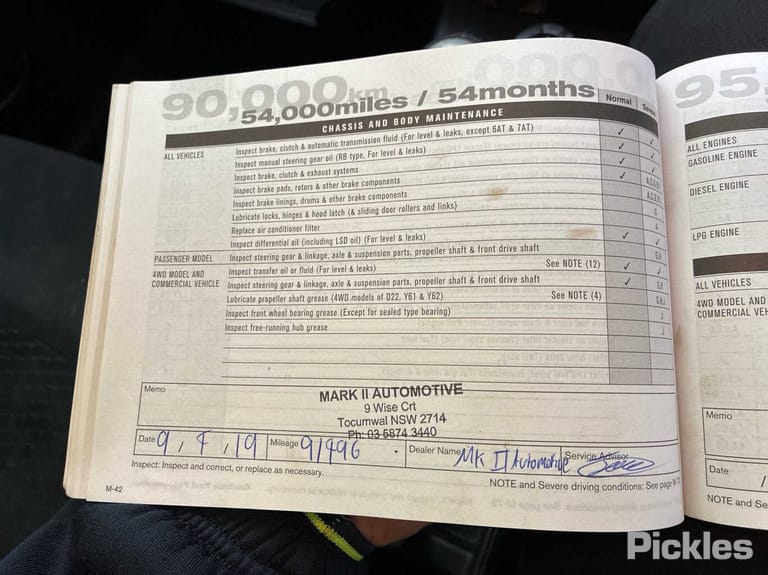 90,000km
54,000miles / 54months
Normal
CHASSIS AND BODY MAINTENANCE
ALL VEHICLES
Inspect brake, clutch & automatic transmission fluid (For level & leaks, except 6AT & 7AT) ✓ ✓
Inspect manual steering gear oil (RB type, For level & leaks) ✓ ✓
Inspect brake, clutch & exhaust systems ✓ ✓
Inspect brake pads, rotors & other brake components ✓
Inspect brake linings, drums & other brake components
Lubricate locks, hinges & hood latch (& sliding door rollers and links)
Replace air conditioner filter
Inspect differential oil (including LSD oil) (For level & leaks) ✓ ✓
PASSENGER MODEL
Inspect steering gear & linkage, axle & suspension parts, propeller shaft & front drive shaft G,H
4WD MODEL AND
COMMERCIAL VEHICLE
Inspect transfer oil or fluid (For level & leaks) See NOTE (12) ✓ ✓
Inspect steering gear & linkage, axle & suspension parts, propeller shaft & front drive shaft ✓ G,H
Lubricate propeller shaft grease (4WD models of D22, Y61 & Y62) See NOTE (4)
Inspect front wheel bearing grease (Except for sealed type bearing)
Inspect free-running hub grease
Memo
MARK II AUTOMOTIVE
9 Wise Crt
Tocumwal NSW 2714
Ph: 03 5874 3440
Date 9, 7, 19 Mileage 91496 Dealer Name MK II Automotive Service Advisor
Inspect: Inspect and correct, or replace as necessary.
NOTE and Severe driving conditions: See page
M-42
95,
ALL ENGINES
GASOLINE ENGINE
DIESEL ENGINE
LPG ENGINE
ALL VEHICLES
4WD MODEL AND
COMMERCIAL
Memo
Date /
NOTE and
Pickles